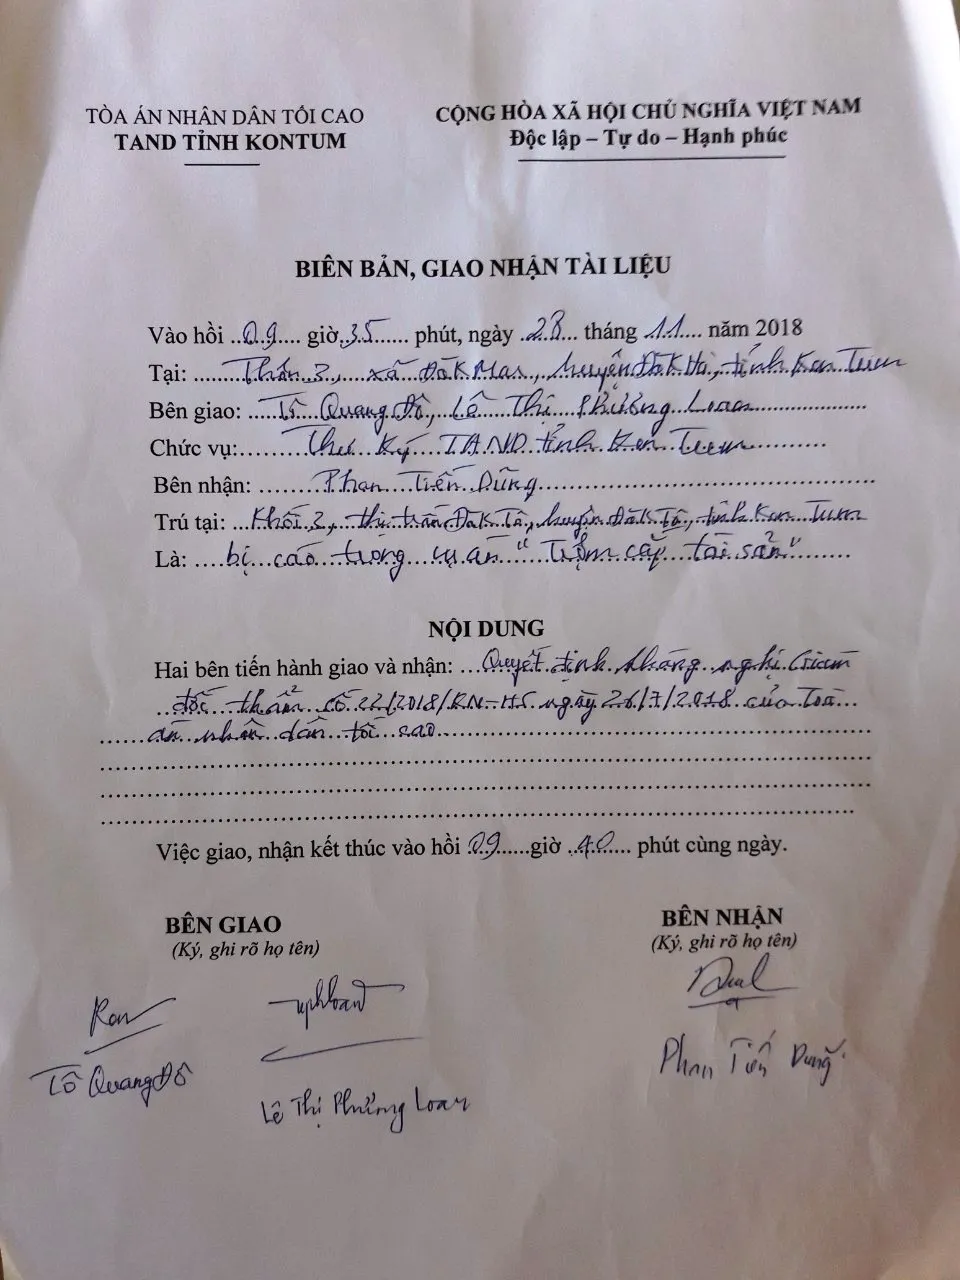 TÒA ÁN NHÂN DÂN TỐI CAO
TAND TỈNH KONTUM
CỘNG HÒA XÃ HỘI CHỦ NGHĨA VIỆT NAM
Độc lập – Tự do – Hạnh phúc
BIÊN BẢN, GIAO NHẬN TÀI LIỆU
Vào hồi ..09.... giờ.35...... phút, ngày .28... tháng .11.... năm 2018
Tại: ......Thôn 3, xã Đăk Mar, huyện Đăk Hà, tỉnh Kon Tum
Bên giao: ...Tô Quang Độ, Lê Thị Phương Loan...............
Chức vụ:......Thư Ký TAND tỉnh Kon Tum..........
Bên nhận: ........Phan Tiến Dũng..........................................
Trú tại: ...Khối 2, thị trấn Đăk Tô, huyện Đăk Tô, tỉnh Kon Tum
Là: ....bị cáo trong vụ án "Trộm cắp tài sản".......
NỘI DUNG
Hai bên tiến hành giao và nhận: ...Quyết định kháng nghị Giám
đốc thẩm số 22/2018/KN-HS ngày 26/7/2018 của Toà
án nhân dân tối cao
Việc giao, nhận kết thúc vào hồi 09......giờ ..40.... phút cùng ngày.
BÊN GIAO
(Ký, ghi rõ họ tên)
BÊN NHẬN
(Ký, ghi rõ họ tên)
Tô Quang Độ
Lê Thị Phương Loan
Phan Tiến Dũng